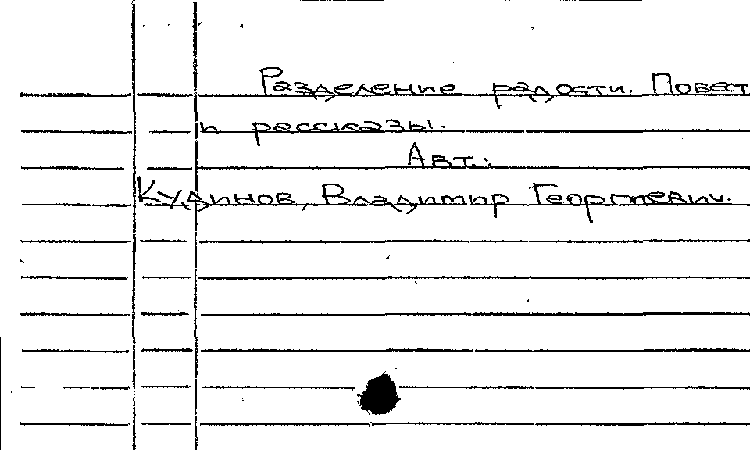 Разделение радости. Повест
и рассказы.
Авт.:
Кудинов, Владимир Георгиевич.